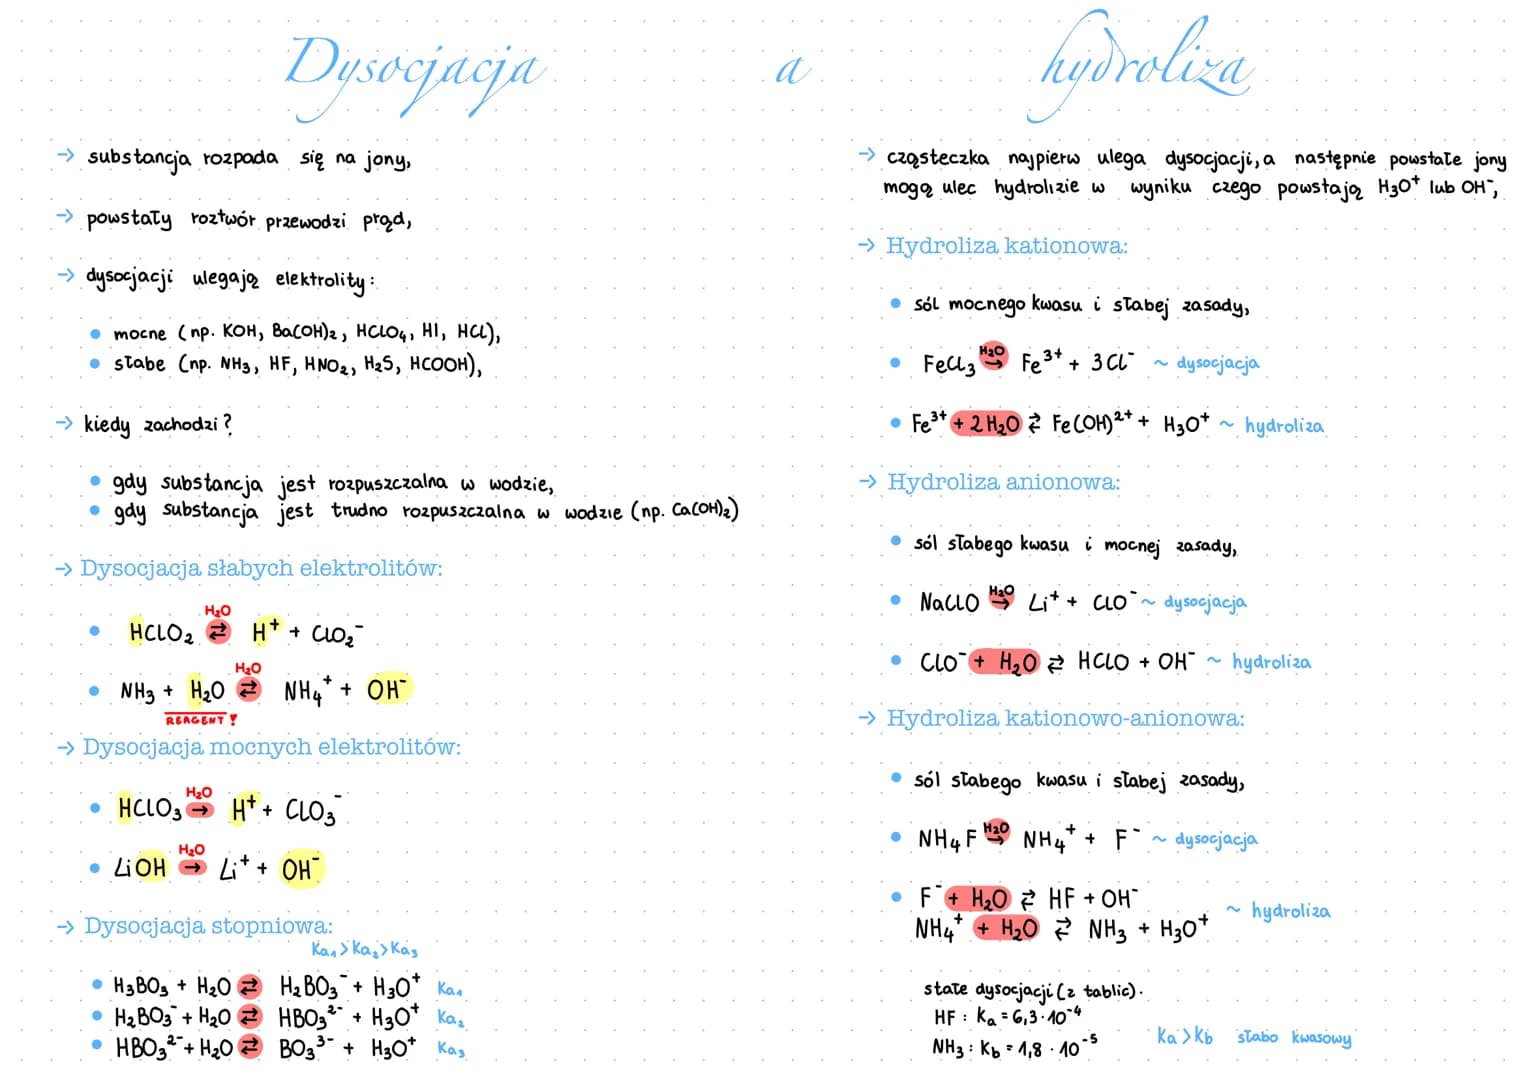 Dysocjacja a hydroliza
→ substancja rozpada się na jony,
→ powstały roztwór przewodzi prąd,
→ dysocjacji ulegają elektrolity:
• mocne (np. KOH, Ba(OH)₂, HClO₄, HI, HCl),
• słabe (np. NH₃, HF, HNO₂, H₂S, HCOOH),
→ kiedy zachodzi?
• gdy substancja jest rozpuszczalna w wodzie,
• gdy substancja jest trudno rozpuszczalna w wodzie (np. Ca(OH)₂)
→ Dysocjacja słabych elektrolitów:
H₂O
• HClO₂ ⇄ H⁺ + ClO₂⁻
H₂O
• NH₃ + H₂O ⇄ NH₄⁺ + OH⁻
REAGENT!
→ Dysocjacja mocnych elektrolitów:
H₂O
• HClO₃ → H⁺ + ClO₃⁻
H₂O
• LiOH → Li⁺ + OH⁻
→ Dysocjacja stopniowa:
Ka₁ > Ka₂ > Ka₃
• H₃BO₃ + H₂O ⇄ H₂BO₃⁻ + H₃O⁺ Ka₁
• H₂BO₃⁻ + H₂O ⇄ HBO₃²⁻ + H₃O⁺ Ka₂
• HBO₃²⁻ + H₂O ⇄ BO₃³⁻ + H₃O⁺ Ka₃
→ cząsteczka najpierw ulega dysocjacji, a następnie powstałe jony
mogą ulec hydrolizie w wyniku czego powstają H₃O⁺ lub OH⁻,
→ Hydroliza kationowa:
• sól mocnego kwasu i słabej zasady,
H₂O
• FeCl₃ → Fe³⁺ + 3Cl⁻ ~ dysocjacja
• Fe³⁺ + 2H₂O ⇄ Fe(OH)²⁺ + H₃O⁺ ~ hydroliza
→ Hydroliza anionowa:
• sól słabego kwasu i mocnej zasady,
H₂O
• NaClO → Li⁺ + ClO⁻ ~ dysocjacja
• ClO⁻ + H₂O ⇄ HClO + OH⁻ ~ hydroliza
→ Hydroliza kationowo-anionowa:
• sól słabego kwasu i słabej zasady,
H₂O
• NH₄F → NH₄⁺ + F⁻ ~ dysocjacja
• F⁻ + H₂O ⇄ HF + OH⁻
~ hydroliza
NH₄⁺ + H₂O ⇄ NH₃ + H₃O⁺
stałe dysocjacji (z tablic).
HF : Ka = 6,3 · 10⁻⁴
NH₃ : Kb = 1,8 · 10⁻⁵
Ka > Kb słabo kwasowy